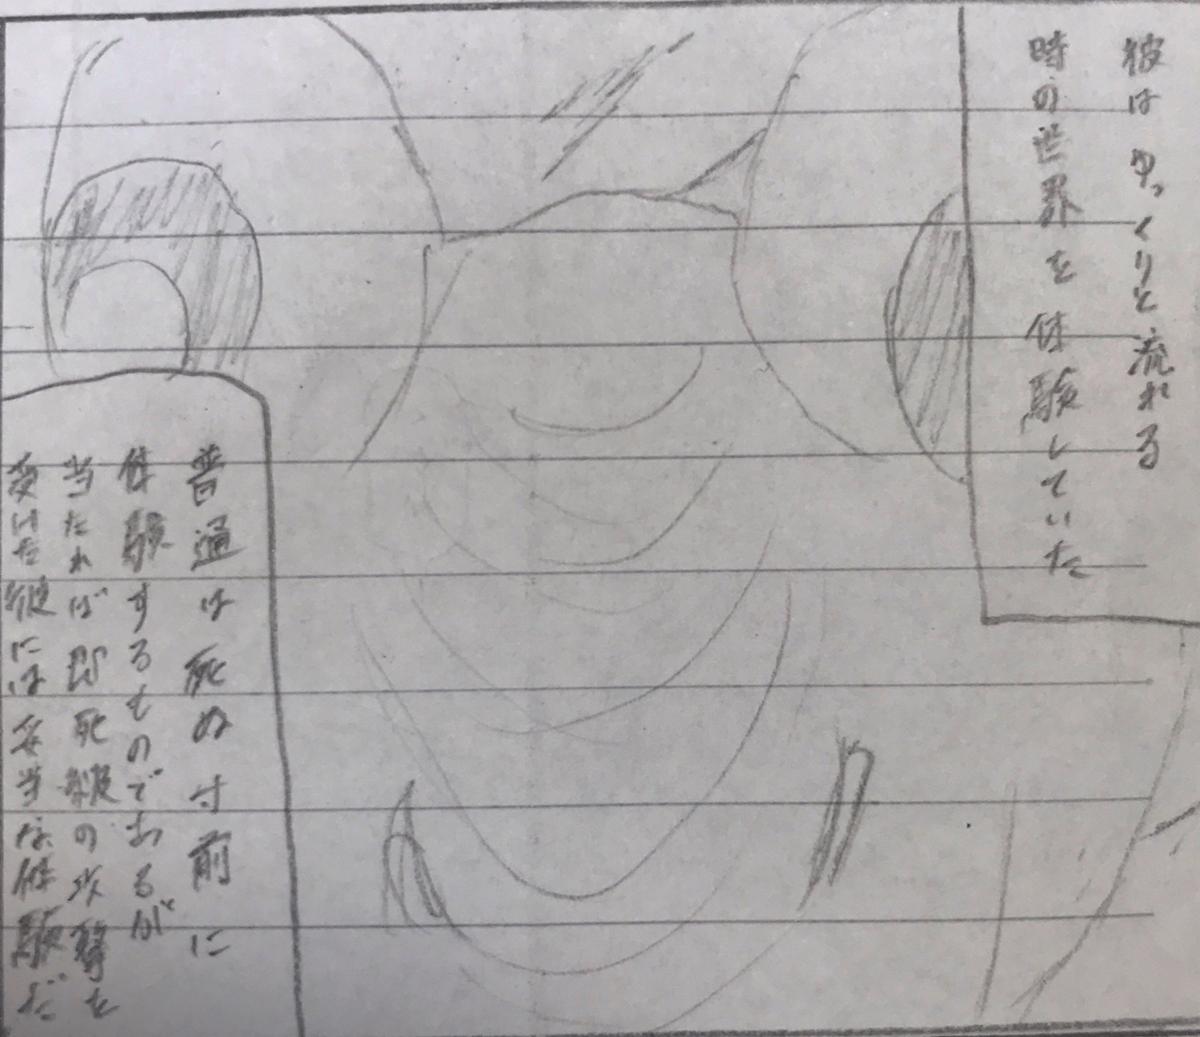 彼はゆっくりと流れる
時の世界を体験していた
普通は死ぬ寸前に
体験するものであるが
当たれば即死級の攻撃を
受けた彼には妥当な体験だ